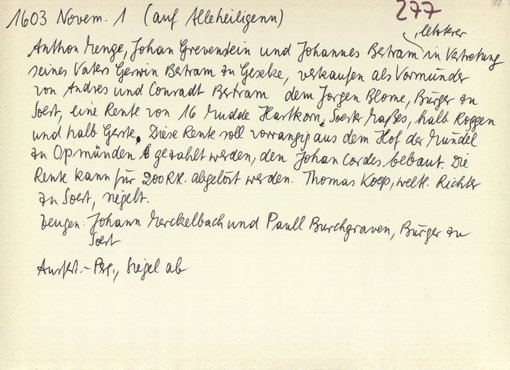 1603 Novem. 1 (auf Alleheiligenn) 277
Anthon Menge, Johan Grevenstein und Johannes Bertram, letzterer in Vertretung
seines Vaters Gerwin Bertram zu Geseke, verkaufen als Vormünder
von Andres und Conradt Bertram dem Jorgen Blome, Bürger zu
Soest, eine Rente von 16 Mudde Hartkorn, Soester Maßes, halb Roggen
und halb Gerste. Diese Rente soll vorrangig aus dem Hof der Mündel
zu Opmünden gezahlt werden, den Johan Cordes bebaut. Die
Rente kann für 200 Rtl. abgelöst werden. Thomas Koep, weltl. Richter
zu Soest, siegelt.
Zeugen: Johann Merckelbach und Paull Burchgraven, Bürger zu
Soest
Ausfert.-Perg., Siegel ab